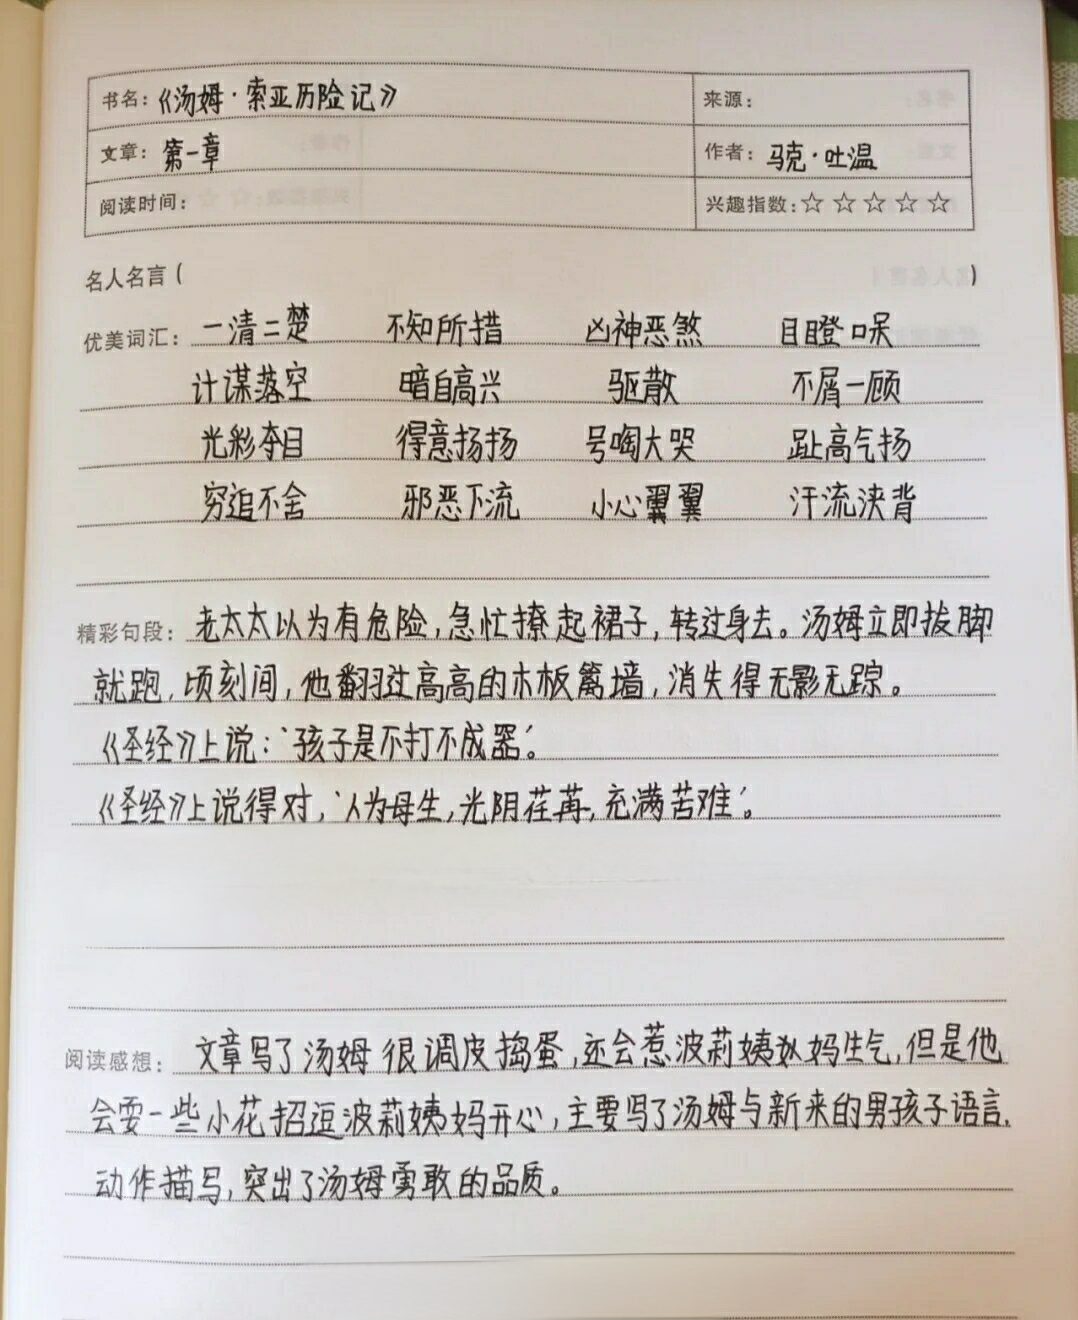 书名：《汤姆·索亚历险记》 来源：
文章：第一章 作者：马克·吐温
阅读时间： 兴趣指数：☆☆☆☆☆
名人名言（ ）
优美词汇：一清二楚 不知所措 凶神恶煞 目瞪口呆
计谋落空 暗自高兴 驱散 不屑一顾
光彩夺目 得意扬扬 号啕大哭 趾高气扬
穷追不舍 邪恶下流 小心翼翼 汗流浃背
精彩句段：老太太以为有危险，急忙撩起裙子，转过身去。汤姆立即拔脚
就跑，顷刻间，他翻过高高的木板篱墙，消失得无影无踪。
《圣经》上说：‘孩子是不打不成器’。
《圣经》上说得对，‘人为母生，光阴荏苒，充满苦难’。
阅读感想：文章写了汤姆很调皮捣蛋，还会惹波莉姨妈生气，但是他
会耍一些小花招逗波莉姨妈开心，主要写了汤姆与新来的男孩子语言，
动作描写，突出了汤姆勇敢的品质。